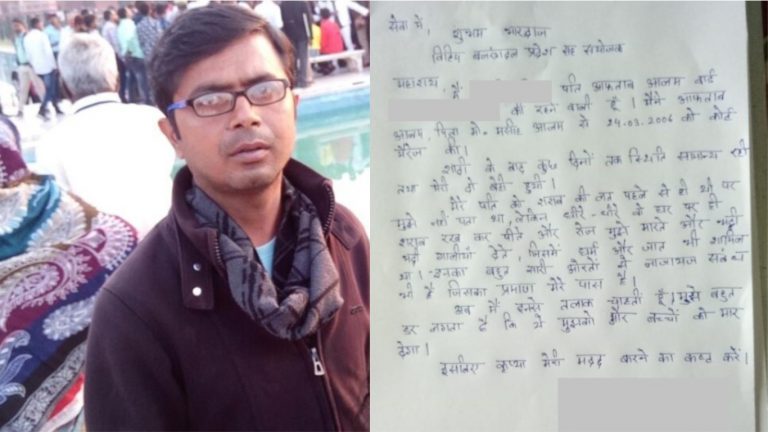 सेवा में,
शुभम भारद्वाज
विहिप बजरंगदल प्रदेश सह संयोजक
महाशय, मैं पति आफताब आलम वार्ड
की रहने वाली हूँ । मैंने आफताब
आलम, पिता मो॰ मसीह आलम से 24.03.2006 को कोर्ट
मैरेज की ।
शादी के बाद कुछ दिनों तक स्थिति सामान्य रही
तथा मेरी दो बेटी हुयी ।
मेरे पति को शराब की लत पहले से ही थी पर
मुझे नहीं पता था, लेकिन धीरे-धीरे वो घर पर ही
शराब रख कर पीते और रोज मुझे मारते और भद्दी
भद्दी गालीयाँ देते जिसमें धर्म और जात भी शामिल
था । इनका बहुत सारी औरतों से नाजायज संबंध
भी है जिसका प्रमाण मेरे पास है ।
अब मैं इनसे तलाक चाहती हूँ । मुझे बहुत
डर लगता है कि ये मुझको और बच्चों को मार
देगा ।
इसलिए कृप्या मेरी मदद करने का कष्ट करें ।